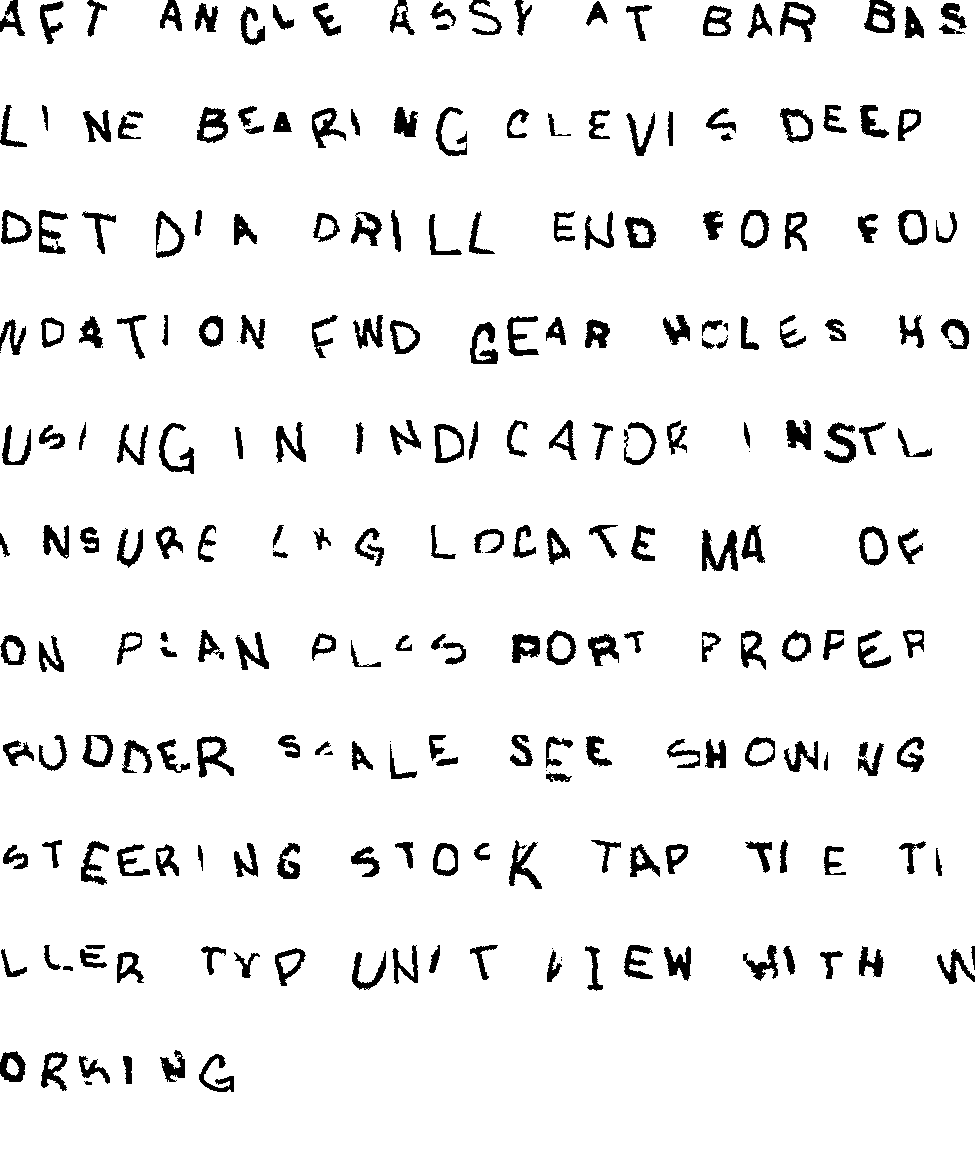 AFT ANGLE ASSY AT BAR BAS
LINE BEARING CLEVIS DEEP
DET DIA DRILL END FOR FOU
NDATION FWD GEAR HOLES HO
USING IN INDICATOR INSTL
INSURE LKG LOCATE MA OF
ON PLAN PLCS PORT PROPER
RUDDER SCALE SEE SHOWING
STEERING STOCK TAP TIE TI
LLER TYP UNIT VIEW WITH W
ORKING